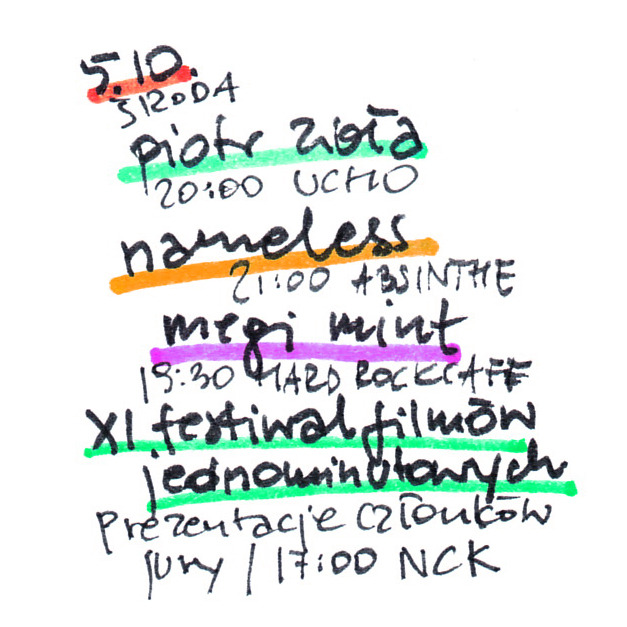 5.10.
ŚRODA
piotr zioła
20:00 UCHO
nameless
21:00 ABSINTHE
megi mint
19:30 HARD ROCK CAFE
XI festiwal filmów
jednominutowych
prezentacje członków
jury / 17:00 NCK